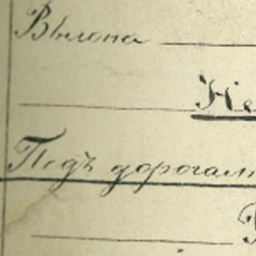 Выгона
Не
Подъ дорогам